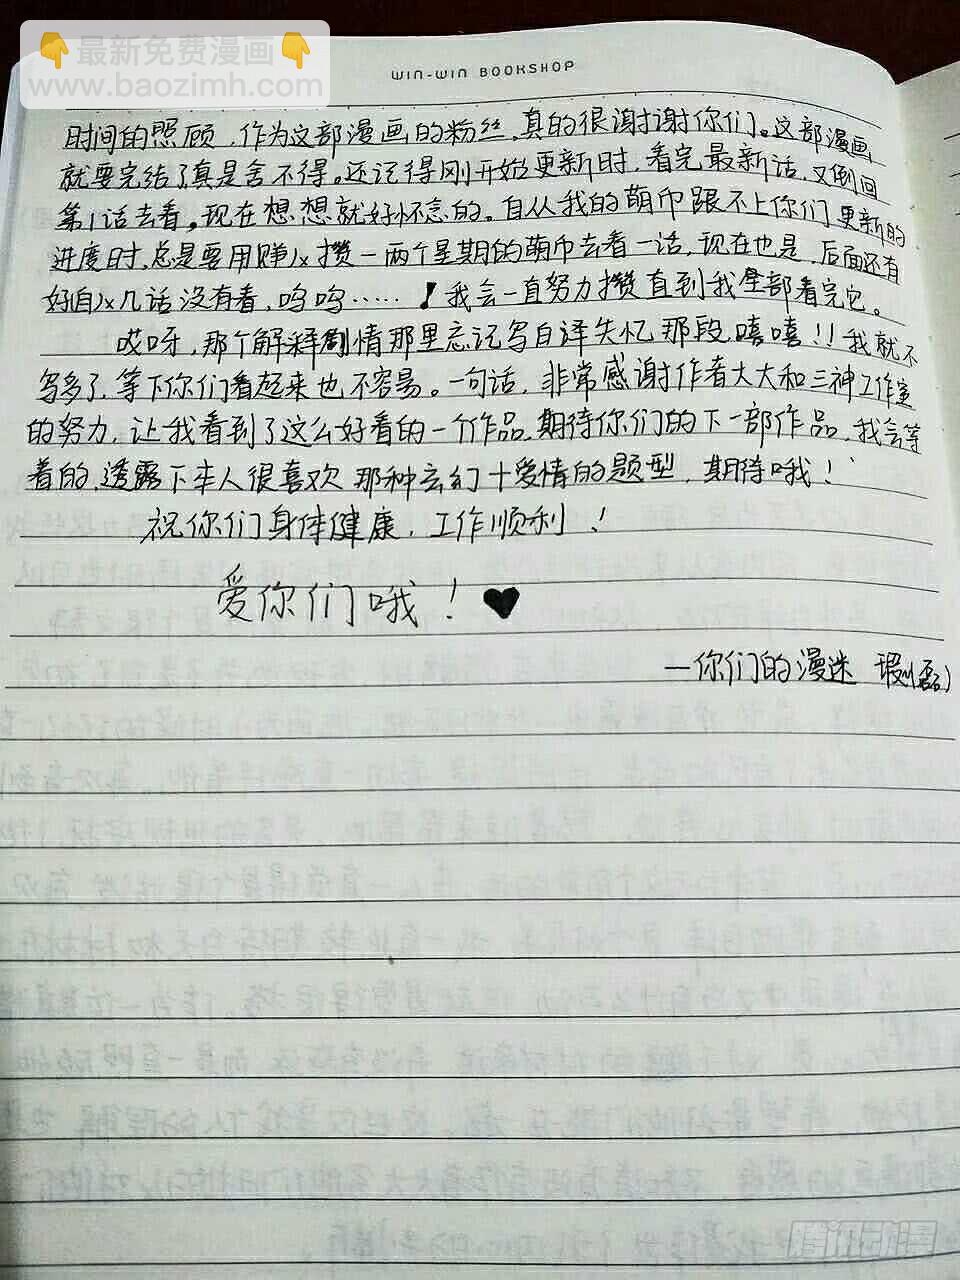 👇最新免费漫画👇
www.baozimh.com
WIN-WIN BOOKSHOP
时间的照顾,作为这部漫画的粉丝,真的很谢谢你们。这部漫画
就要完结了真是舍不得。还记得刚开始更新时,看完最新话,又倒回
第1话去看。现在想想就好怀念的。自从我的萌币跟不上你们更新的
进度时,总是要用赚攒一两个星期的萌币去看一话,现在也是,后面还有
好几话没有看,呜呜……!我会一直努力攒直到我全部看完它。
哎呀,那个解释剧情那里忘记写白泽失忆那段,嘻嘻!!我就不
写多了,等下你们看起来也不容易。一句话,非常感谢作者大大和三神工作室
的努力,让我看到了这么好看的一个作品,期待你们的下一部作品,我会等
着的,透露下本人很喜欢那种玄幻+爱情的题型,期待哦!
祝你们身体健康,工作顺利!
爱你们哦!♥
—你们的漫迷
腾讯动漫